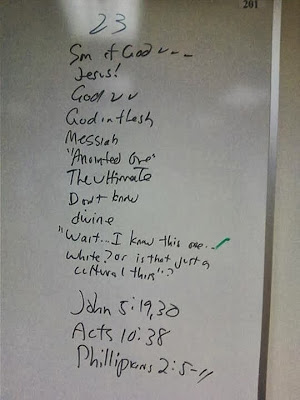 201
23
Son of God ✓ - -
Jesus!
God ✓ ✓
God in flesh
Messiah
"Anointed One"
The Ultimate
Don't know
divine
"Wait... I know this one... ✓
white? or is that just a
cultural thing"?
John 5:19,30
Acts 10:38
Phillipians 2:5-11